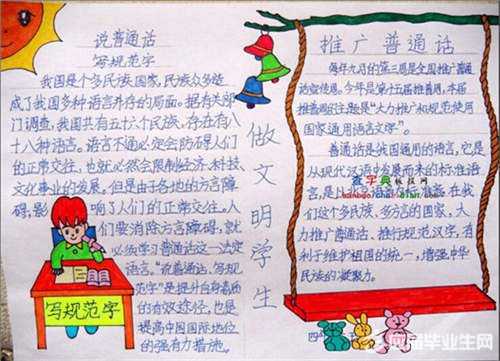 说普通话
写规范字
我国是个多民族国家,民族众多造
成了我国多种语言并存的局面。据有关部
门调查,我国共有五十六个民族,存在有八
十八种语言。语言不通必定会防碍人们
的正常交往,也就必然会限制经济、科技、
文化事业的发展。但是由于各地的方言障
碍,影响了人们的正常交往。人
们要消除方言障碍,就
必须学习普通话这一法定
语言。“说普通话,写规
范字”是提升自身素质
的有效途径,也是
提高中国国际地位
的强有力措施。
写规范字
做文明学生
推广普通话
每年九月的第三周是全国推广普通
话宣传周。今年是第十五届推普周,本届
推普周的主题是“大力推广和规范使用
国家通用语言文字”。
普通话是我国通用的语言,它是
从现代汉语中发展而来的标准语
言,是以北京
在我
们这个多民族、多方言的国家,大
力推广普通话、推行规范汉字,有
利于维护祖国的统一,增强中华
民族的凝聚力。
查字典
板报网
四
应届毕业生网